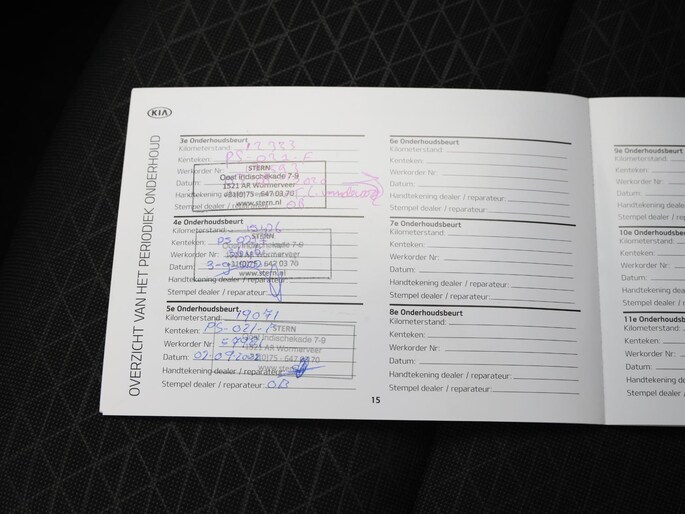 KIA
OVERZICHT VAN HET PERIODIEK ONDERHOUD
3e Onderhoudsbeurt
Kilometerstand: 12383
Kenteken:
Werkorder Nr:
Datum:
Handtekening
Stempel dealer /
OB
STERN
Oost Indischekade 7-9
1521 AR Wormerveer
+31(0)75 - 647 03 70
www.stern.nl
4e Onderhoudsbeurt
Kilometerstand:
Kenteken:
Werkorder Nr:
Datum:
Handtekening dealer / reparateur:
Stempel dealer / reparateur:
STERN
Oost Indischekade 7-9
1521 AR Wormerveer
+31(0)75 - 647 03 70
www.stern.nl
5e Onderhoudsbeurt
Kilometerstand: 19071
Kenteken: PS-021-
Werkorder Nr:
Datum: 02-09-
Handtekening dealer / reparateur:
Stempel dealer / reparateur: OB
STERN
Oost Indischekade 7-9
1521 AR Wormerveer
+31(0)75 - 647 03 70
www.stern.nl
6e Onderhoudsbeurt
Kilometerstand:
Kenteken:
Werkorder Nr:
Datum:
Handtekening dealer / reparateur:
Stempel dealer / reparateur:
7e Onderhoudsbeurt
Kilometerstand:
Kenteken:
Werkorder Nr:
Datum:
Handtekening dealer / reparateur:
Stempel dealer / reparateur:
8e Onderhoudsbeurt
Kilometerstand:
Kenteken:
Werkorder Nr:
Datum:
Handtekening dealer / reparateur:
Stempel dealer / reparateur:
15
9e Onderhoudsbeurt
Kilometerstand:
Kenteken:
Werkorder Nr:
Datum:
Handtekening dealer
Stempel dealer / rep
10e Onderhoudsb
Kilometerstand:
Kenteken:
Werkorder Nr:
Datum:
Handtekening deale
Stempel dealer / re
11e Onderhoudsb
Kilometerstand:
Kenteken:
Werkorder Nr:
Datum:
Handtekening deal
Stempel dealer / r